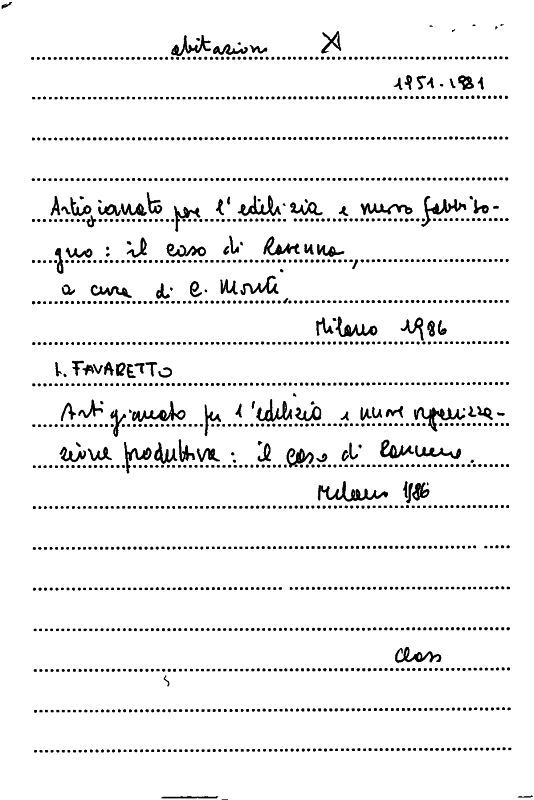 abitazioni X
1951-1981
Artigianato per l'edilizia e nuovo fabbiso-
gno: il caso di Ravenna,
a cura di C. Monti,
Milano 1986
I. FAVARETTO
Artigianato per l'edilizia e nuove organizza-
zione produttiva: il caso di Ravenna.
Milano 1986
Class